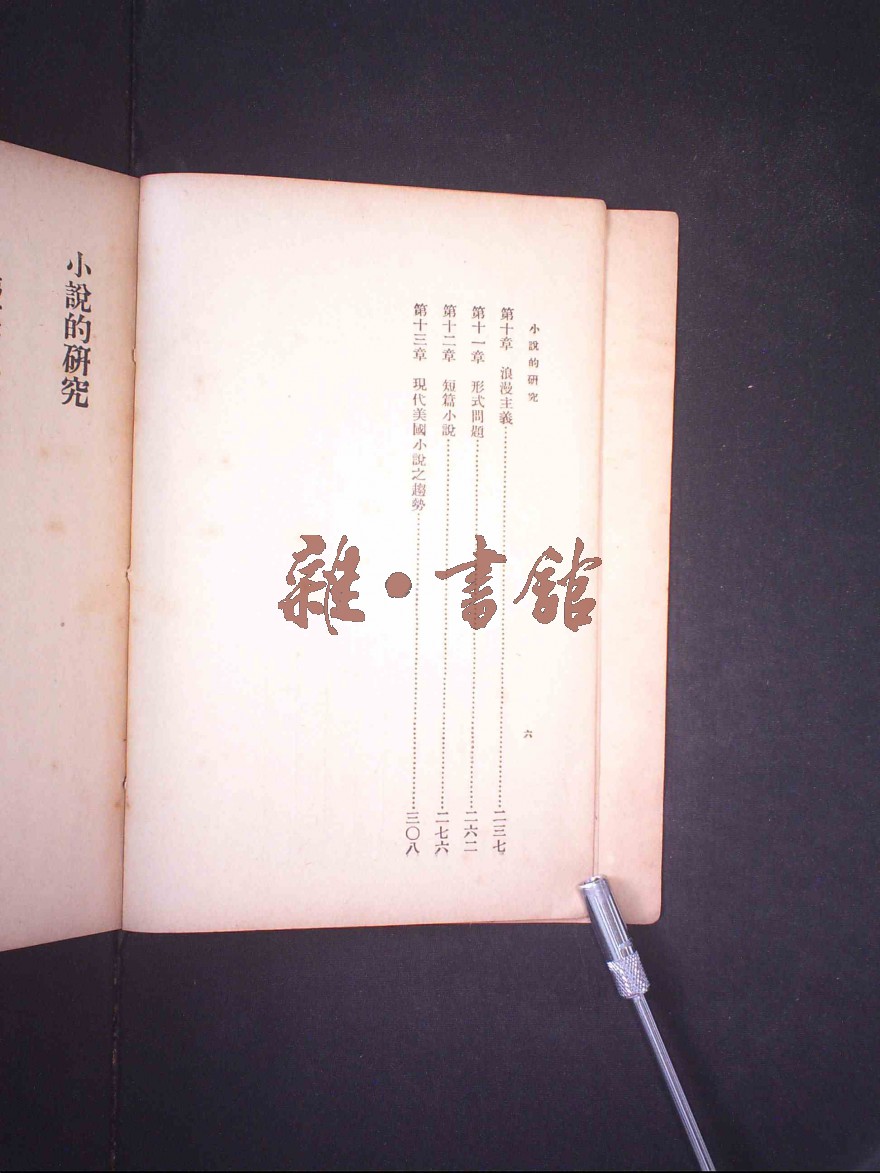 小說的研究
第十章　浪漫主義……二三七
第十一章　形式問題……二六二
第十二章　短篇小說……二七六
第十三章　現代美國小說之趨勢……三〇八
六
雜•書館
小說的研究